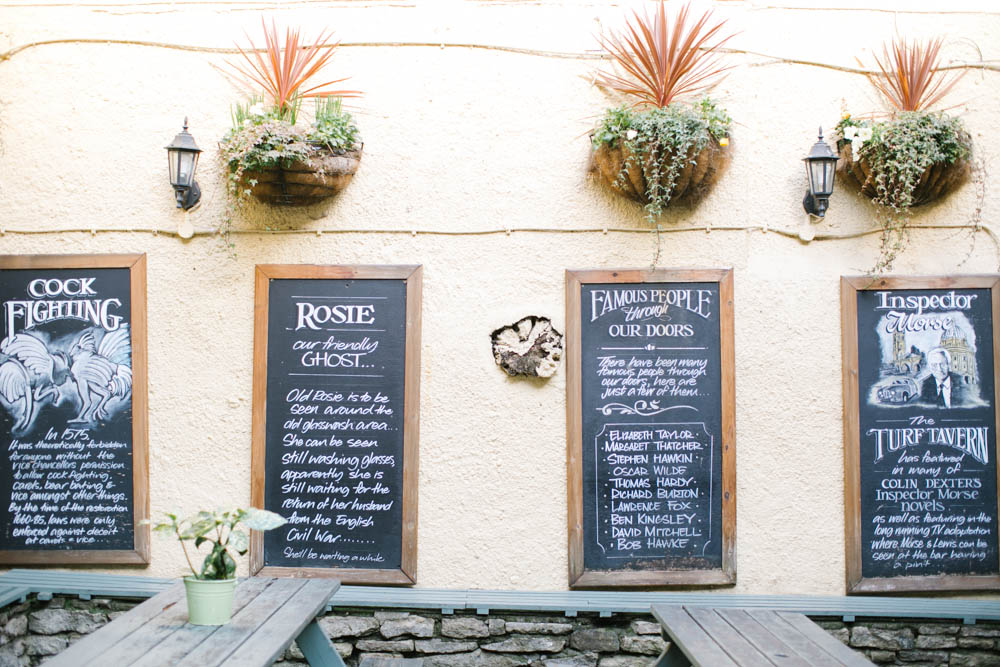 COCK
FIGHTING
In 1575,
It was theoretically forbidden
for anyone without the
vice chancellors permission
to allow cock fighting,
Carols, bear baiting &
vice amongst other things.
By the time of the restoration
1660-85, laws were only
enforced against deceit
at cards & vice......
ROSIE
our friendly
GHOST...
Old Rosie is to be
seen around the
old glasswash area...
She can be seen
still washing glasses,
apparently she is
still waiting for the
return of her husband
from the English
Civil War........
She'll be waiting a while
FAMOUS PEOPLE
through
OUR DOORS
There have been many
famous people through
our doors, here are
just a few of them...
• ELIZABETH TAYLOR •
MARGARET THATCHER
STEPHEN HAWKIN
• OSCAR WILDE •
THOMAS HARDY
RICHARD BURTON
LAWRENCE FOX
BEN KINGSLEY
DAVID MITCHELL
• BOB HAWKE •
Inspector
Morse
The
TURF TAVERN
has featured
in many of
COLIN DEXTER'S
Inspector Morse
novels
as well as featuring in the
long running T.V adaptation
where Morse & Lewis can be
seen at the bar having
a pint